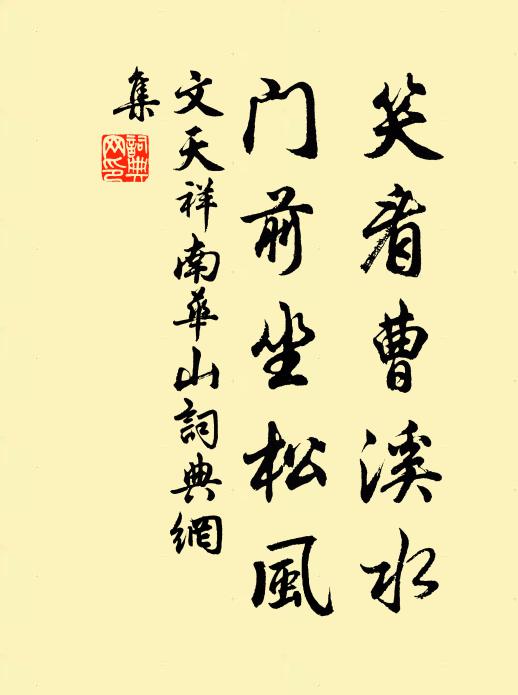 笑看曹溪水
门前坐松風
文天祥南華山詞典網
集
詞典網印